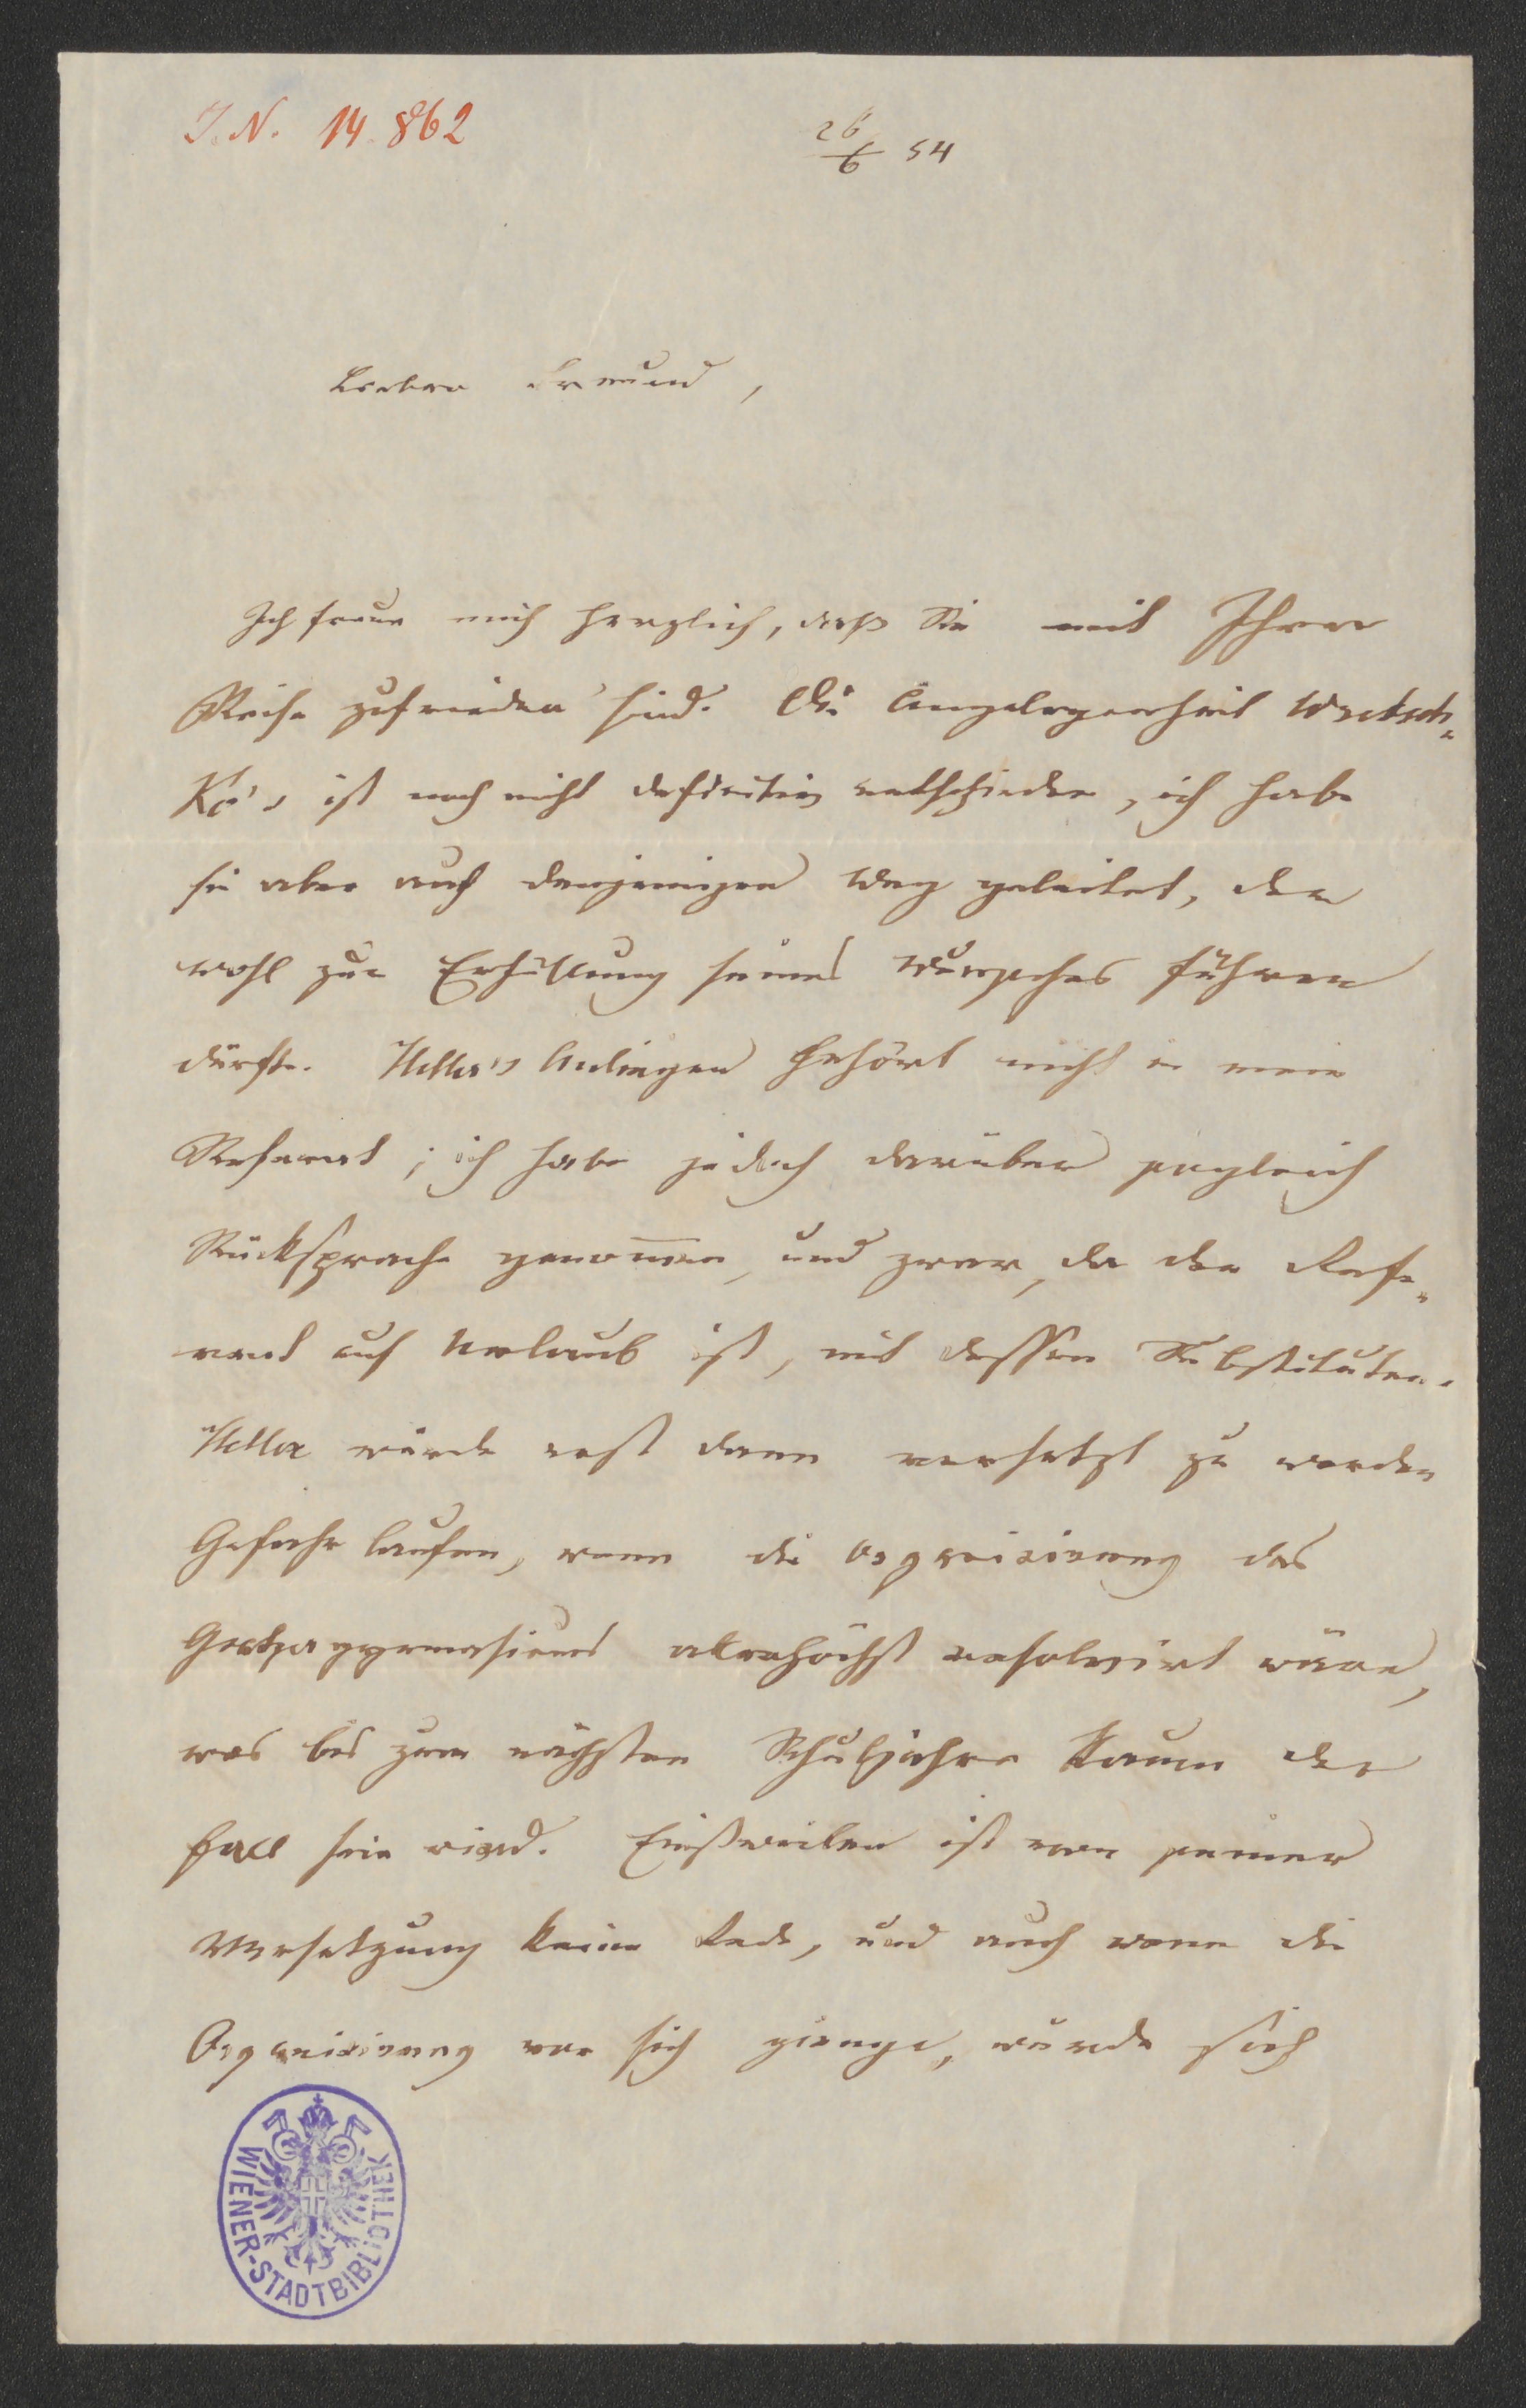 I. N. 14.862
26/6 54
Lieber Freund,
Ich freue mich herzlich, daß Sie mit Ihrer
Reise zufrieden sind. Die Angelegenheit Wretsch-
Ko's ist noch nicht definitiv entschieden, ich habe
sie aber auf denjenigen Weg geleitet, der
wohl zur Erfüllung seines Wunsches führen
dürfte. Heller's Anliegen gehört nicht in mein
Referat; ich habe jedoch darüber sogleich
Rücksprache genom̅en, und zwar, da der Refe-
rent auf Urlaub ist, mit dessen Substituten.
Heller würde erst dann versetzt zu werden
Gefahr laufen, wenn die Organisirung des
Gratzergymnasiums allerhöchst resolvirt wäre,
was bis zum nächsten Schuljahre kaum der
Fall sein wird. Einstweilen ist von seiner
Versetzung keine Rede, und auch wenn die
Organisirung vor sich gienge, würde sich
WIENER-STADTBIBLIOTHEK